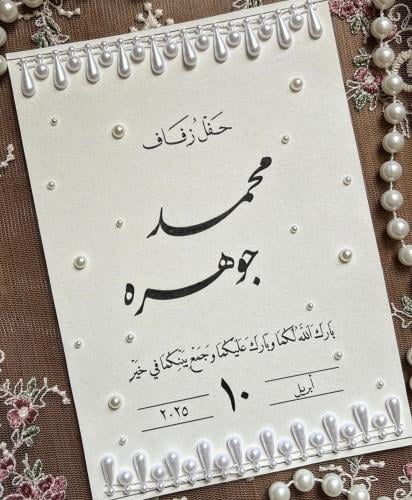 حَفْل زُفَاف
محمد
جوهره
بَارَكَ اللَّهُ لَكُمَا وَبَارَكَ عَلَيْكُمَا وَجَمَعَ بَيْنِكُمَا فِي خَيْرْ
أبريل ١٠ ٢٠٢٥